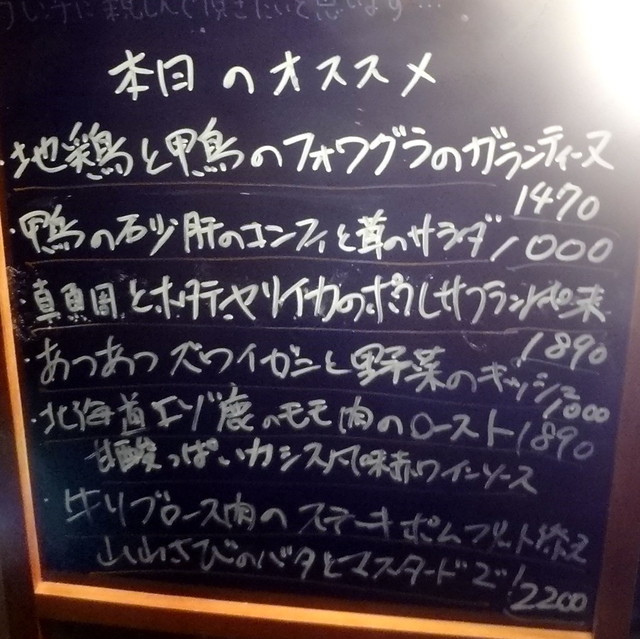 本日のオススメ
・地鶏と鴨のフォワグラのガランティーヌ
1470
・鴨の石少肝のコンフィと茸のサラダ 1000
・真鯛とホタテ、ヤリイカのポワレサフラン
1890
・あつあつズワイガニと野菜のキッシュ
1000
・北海道エゾ鹿のモモ肉のロースト 1890
甘酸っぱいカシス風味赤ワインソース
・牛リブロース肉のステーキポムフリット添え
山わさびのバタとマスタードで!
2200